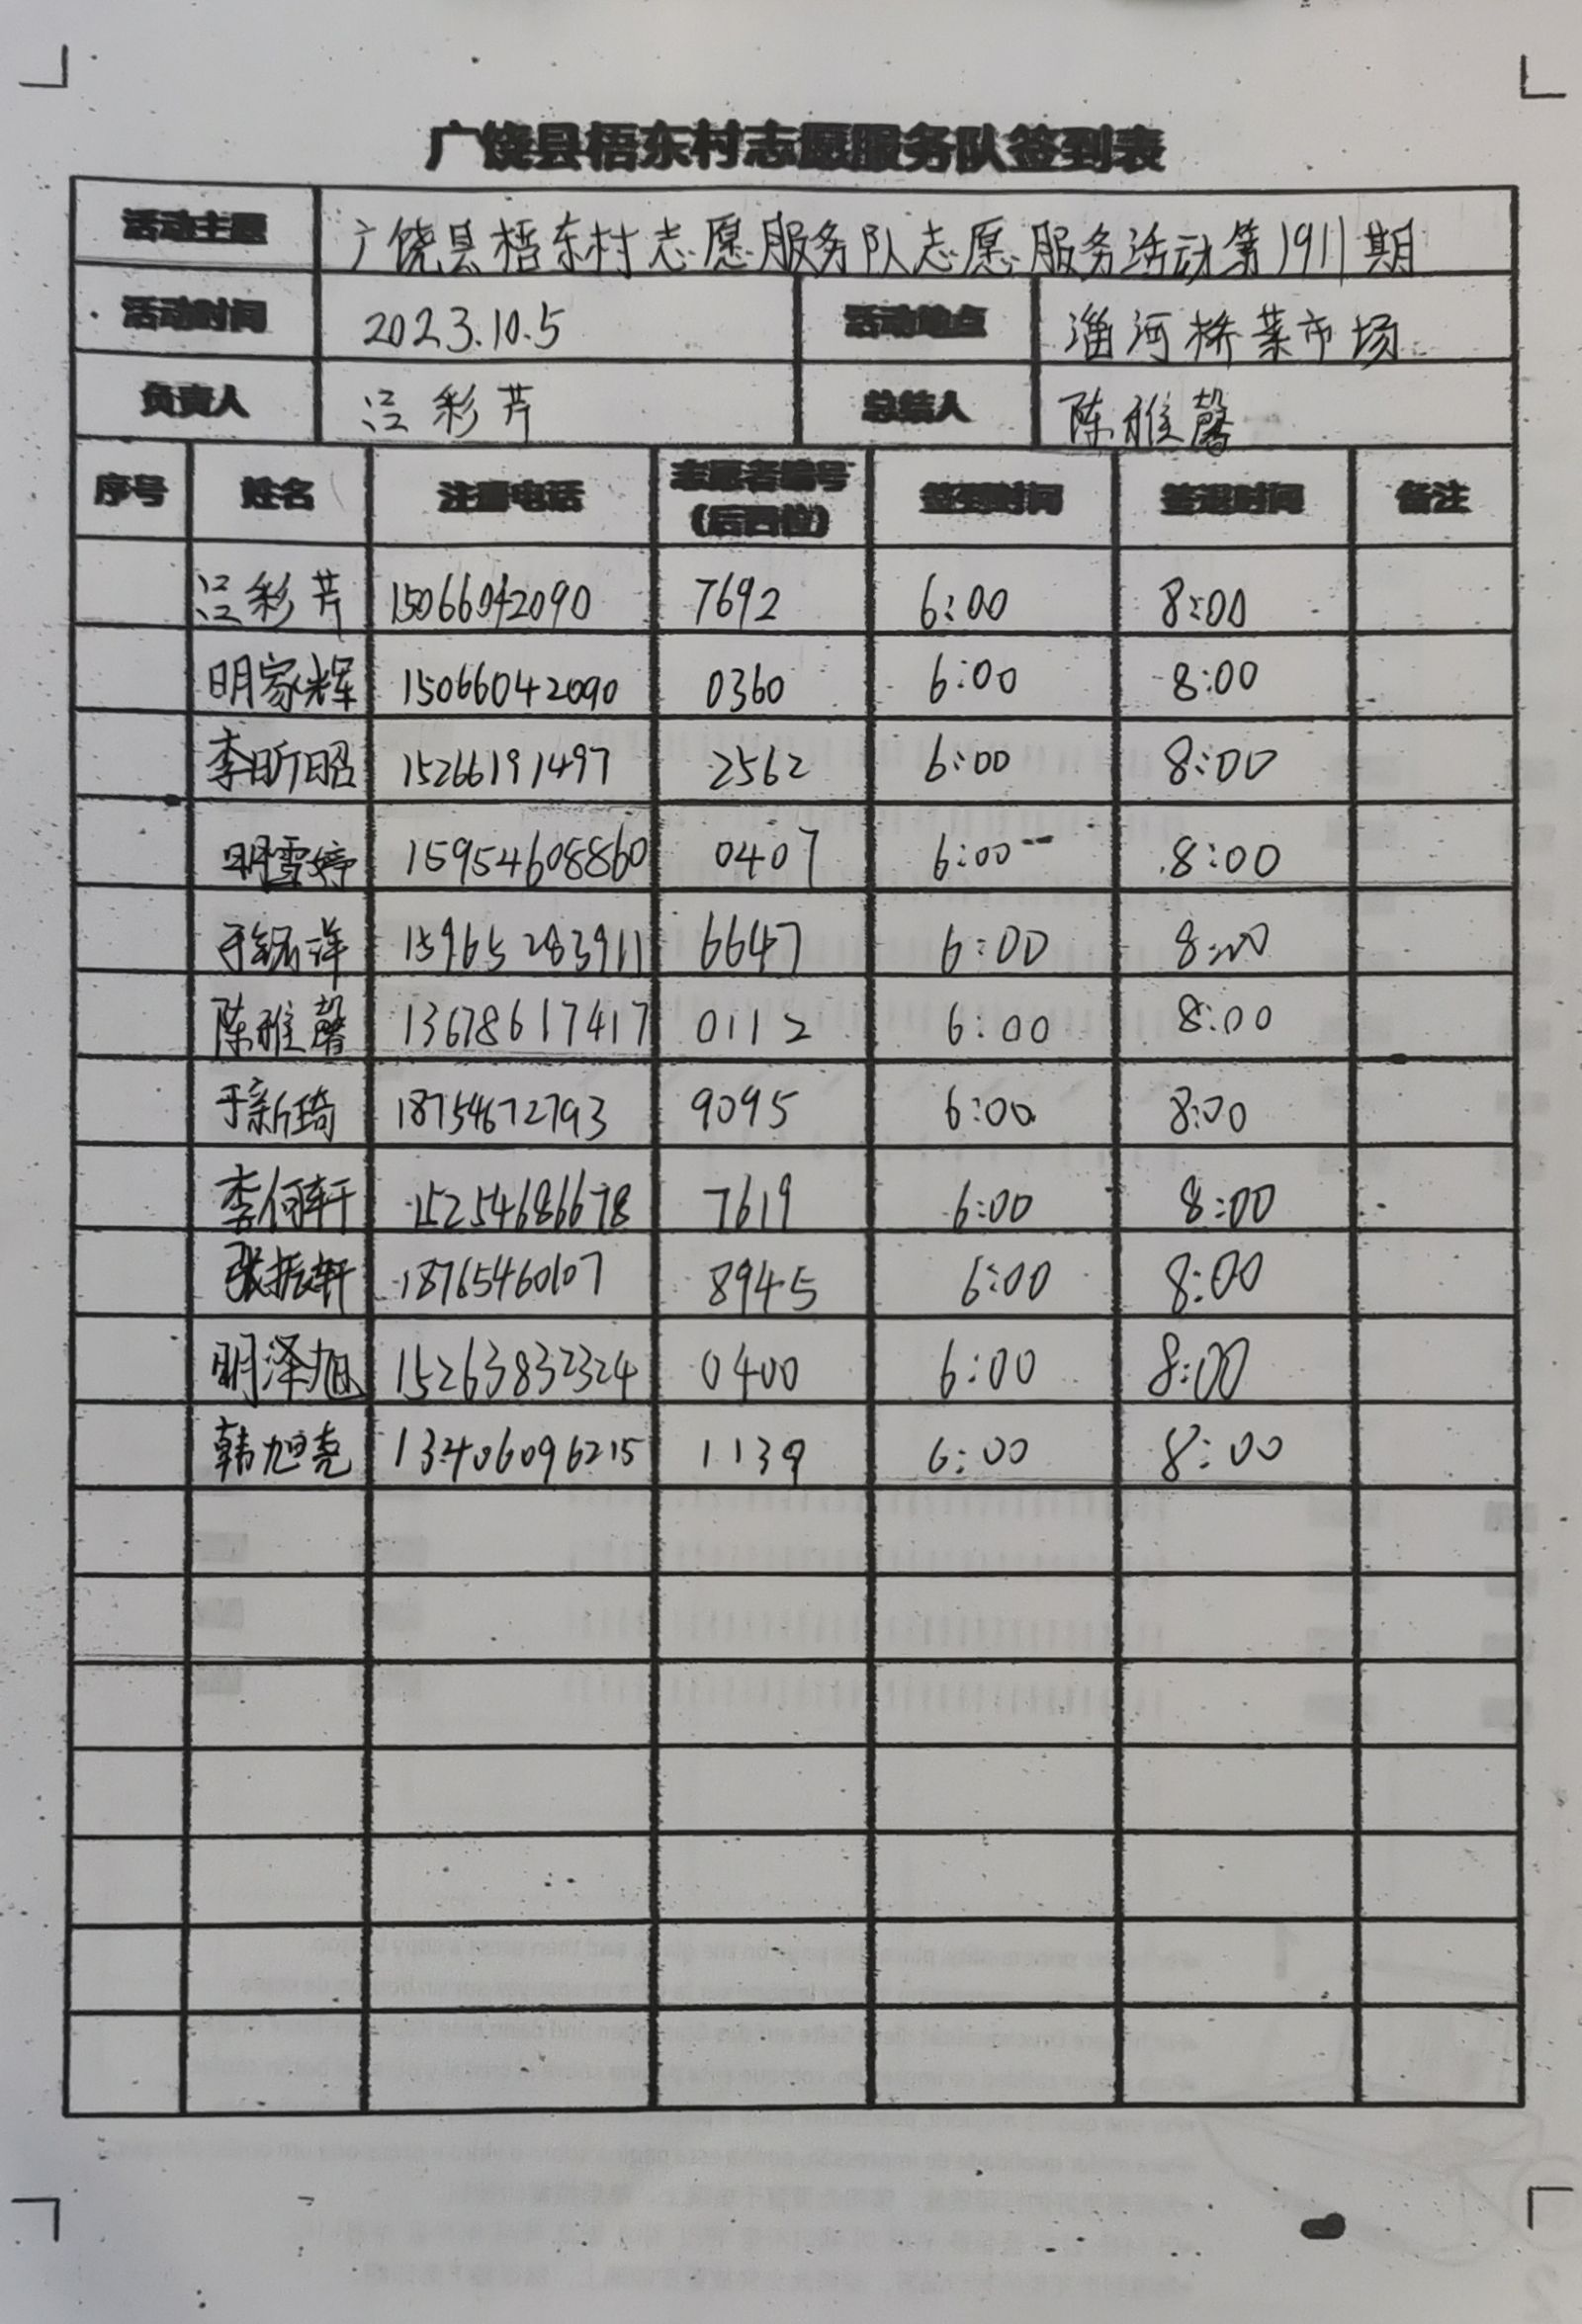 广饶县梧东村志愿服务队签到表
活动主题 广饶县梧东村志愿服务队志愿服务活动第1911期
活动时间 2023.10.5 活动地点 淄河桥菜市场
负责人 吕彩芹 总结人 陈雅馨
序号 姓名 注册电话 志愿者编号(后四位) 签到时间 签退时间 备注
吕彩芹 15066042090 7692 6:00 8:00
明家辉 15066042090 0360 6:00 8:00
李昕昭 15266191497 2562 6:00 8:00
明雪婷 15954608860 0407 6:00 8:00
于 洋 15965283911 6647 6:00 8:00
陈雅馨 13678617417 0112 6:00 8:00
于新琦 18754672793 9095 6:00 8:00
李何轩 15254686678 7619 6:00 8:00
张振轩 18765460107 8945 6:00 8:00
明泽旭 15263832324 0400 6:00 8:00
韩旭尧 13406096215 1139 6:00 8:00